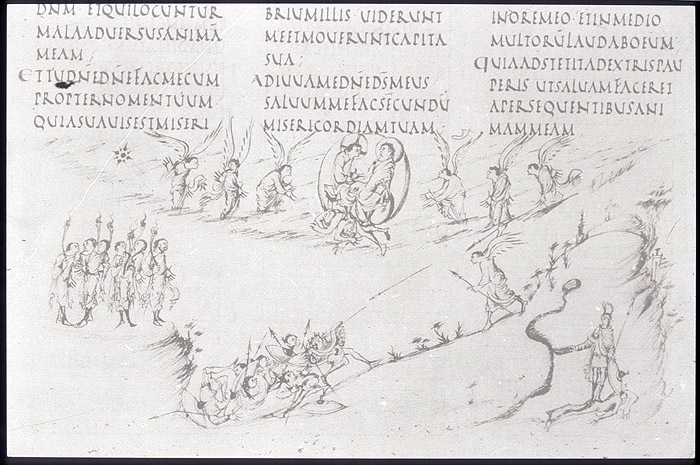 DNM ETQUILOCUNTUR
MALAADUERSUSANIMĀ
MEAM;
ETTUDN̄EDN̄EFACMECUM
PROPTERNOMENTUUM
QUIASUAUISESTMISERI
BRIUMILLIS UIDERUNT
MEETMOUERUNTCAPITA
SUA;
ADIUUAMEDN̄EDS̄MEUS
SALUUMMEFACSECUNDŪ
MISERICORDIAMTUAM
INOREMEO ETINMEDIO
MULTORŪLAUDABOEUM
QUIAADSTETITADEXTRISPAU
PERIS UTSALUAMFACERET
APERSEQUENTIBUSANI
MAMMEAM